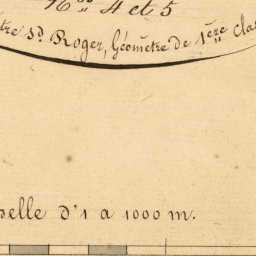 N.os 4 et 5
tre Sd. Roger, Géomètre de 1ère clas
elle d'1 a 1000 m.